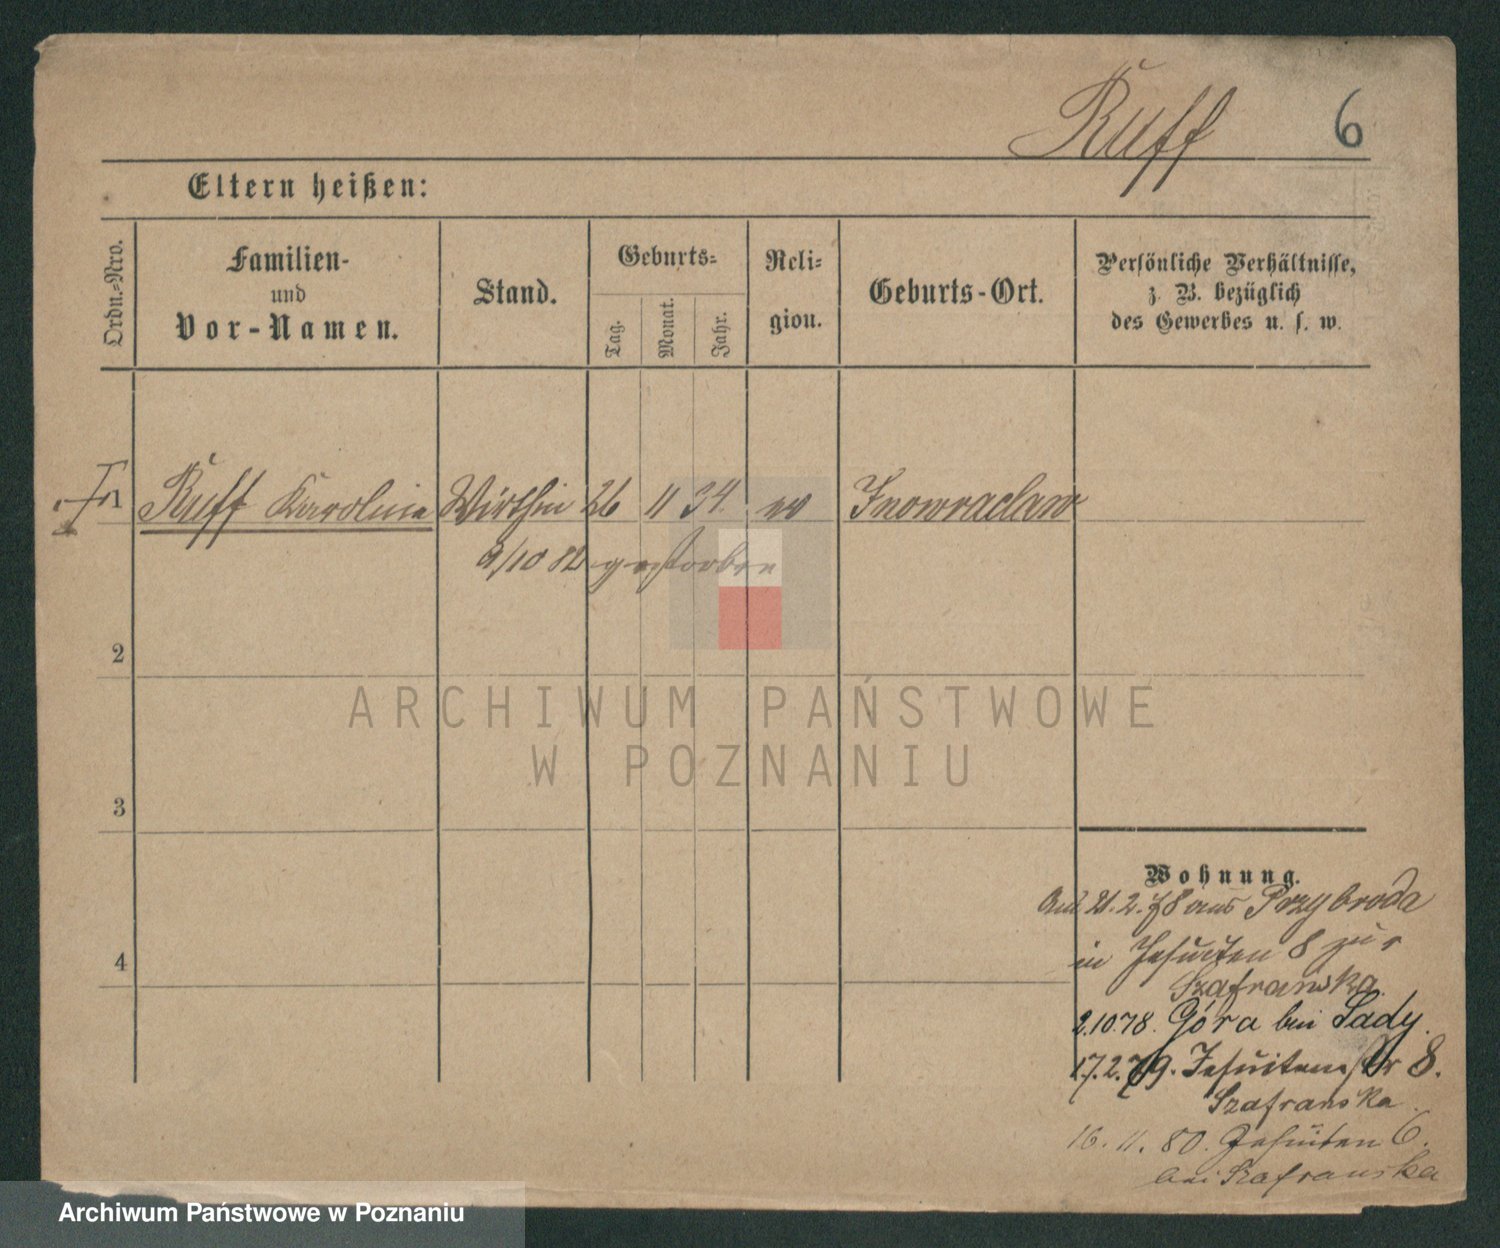 Ruff 6
Eltern heißen:
Ordn.-Nro.
Familien-
und
Vor-Namen.
Stand.
Geburts-
Tag.
Monat.
Jahr.
Reli-
gion.
Geburts-Ort.
Persönliche Verhältnisse,
z. B. bezüglich
des Gewerbes u. s. w.
1 Ruff Karolina Wirthin 26 11 34. ev Inowraclaw
9/10 82 gestorben
2
3
4
ARCHIWUM PAŃSTWOWE
W POZNANIU
Wohnung.
21.2.78 aus Przybroda
in Jesuiten 8 zur
Szafranska.
2.10.78. Góra bei Sady.
17.2.79. Jesuitenstr 8.
Szafranska
16.11.80. Jesuiten 6.
bei Szafranska
Archiwum Państwowe w Poznaniu